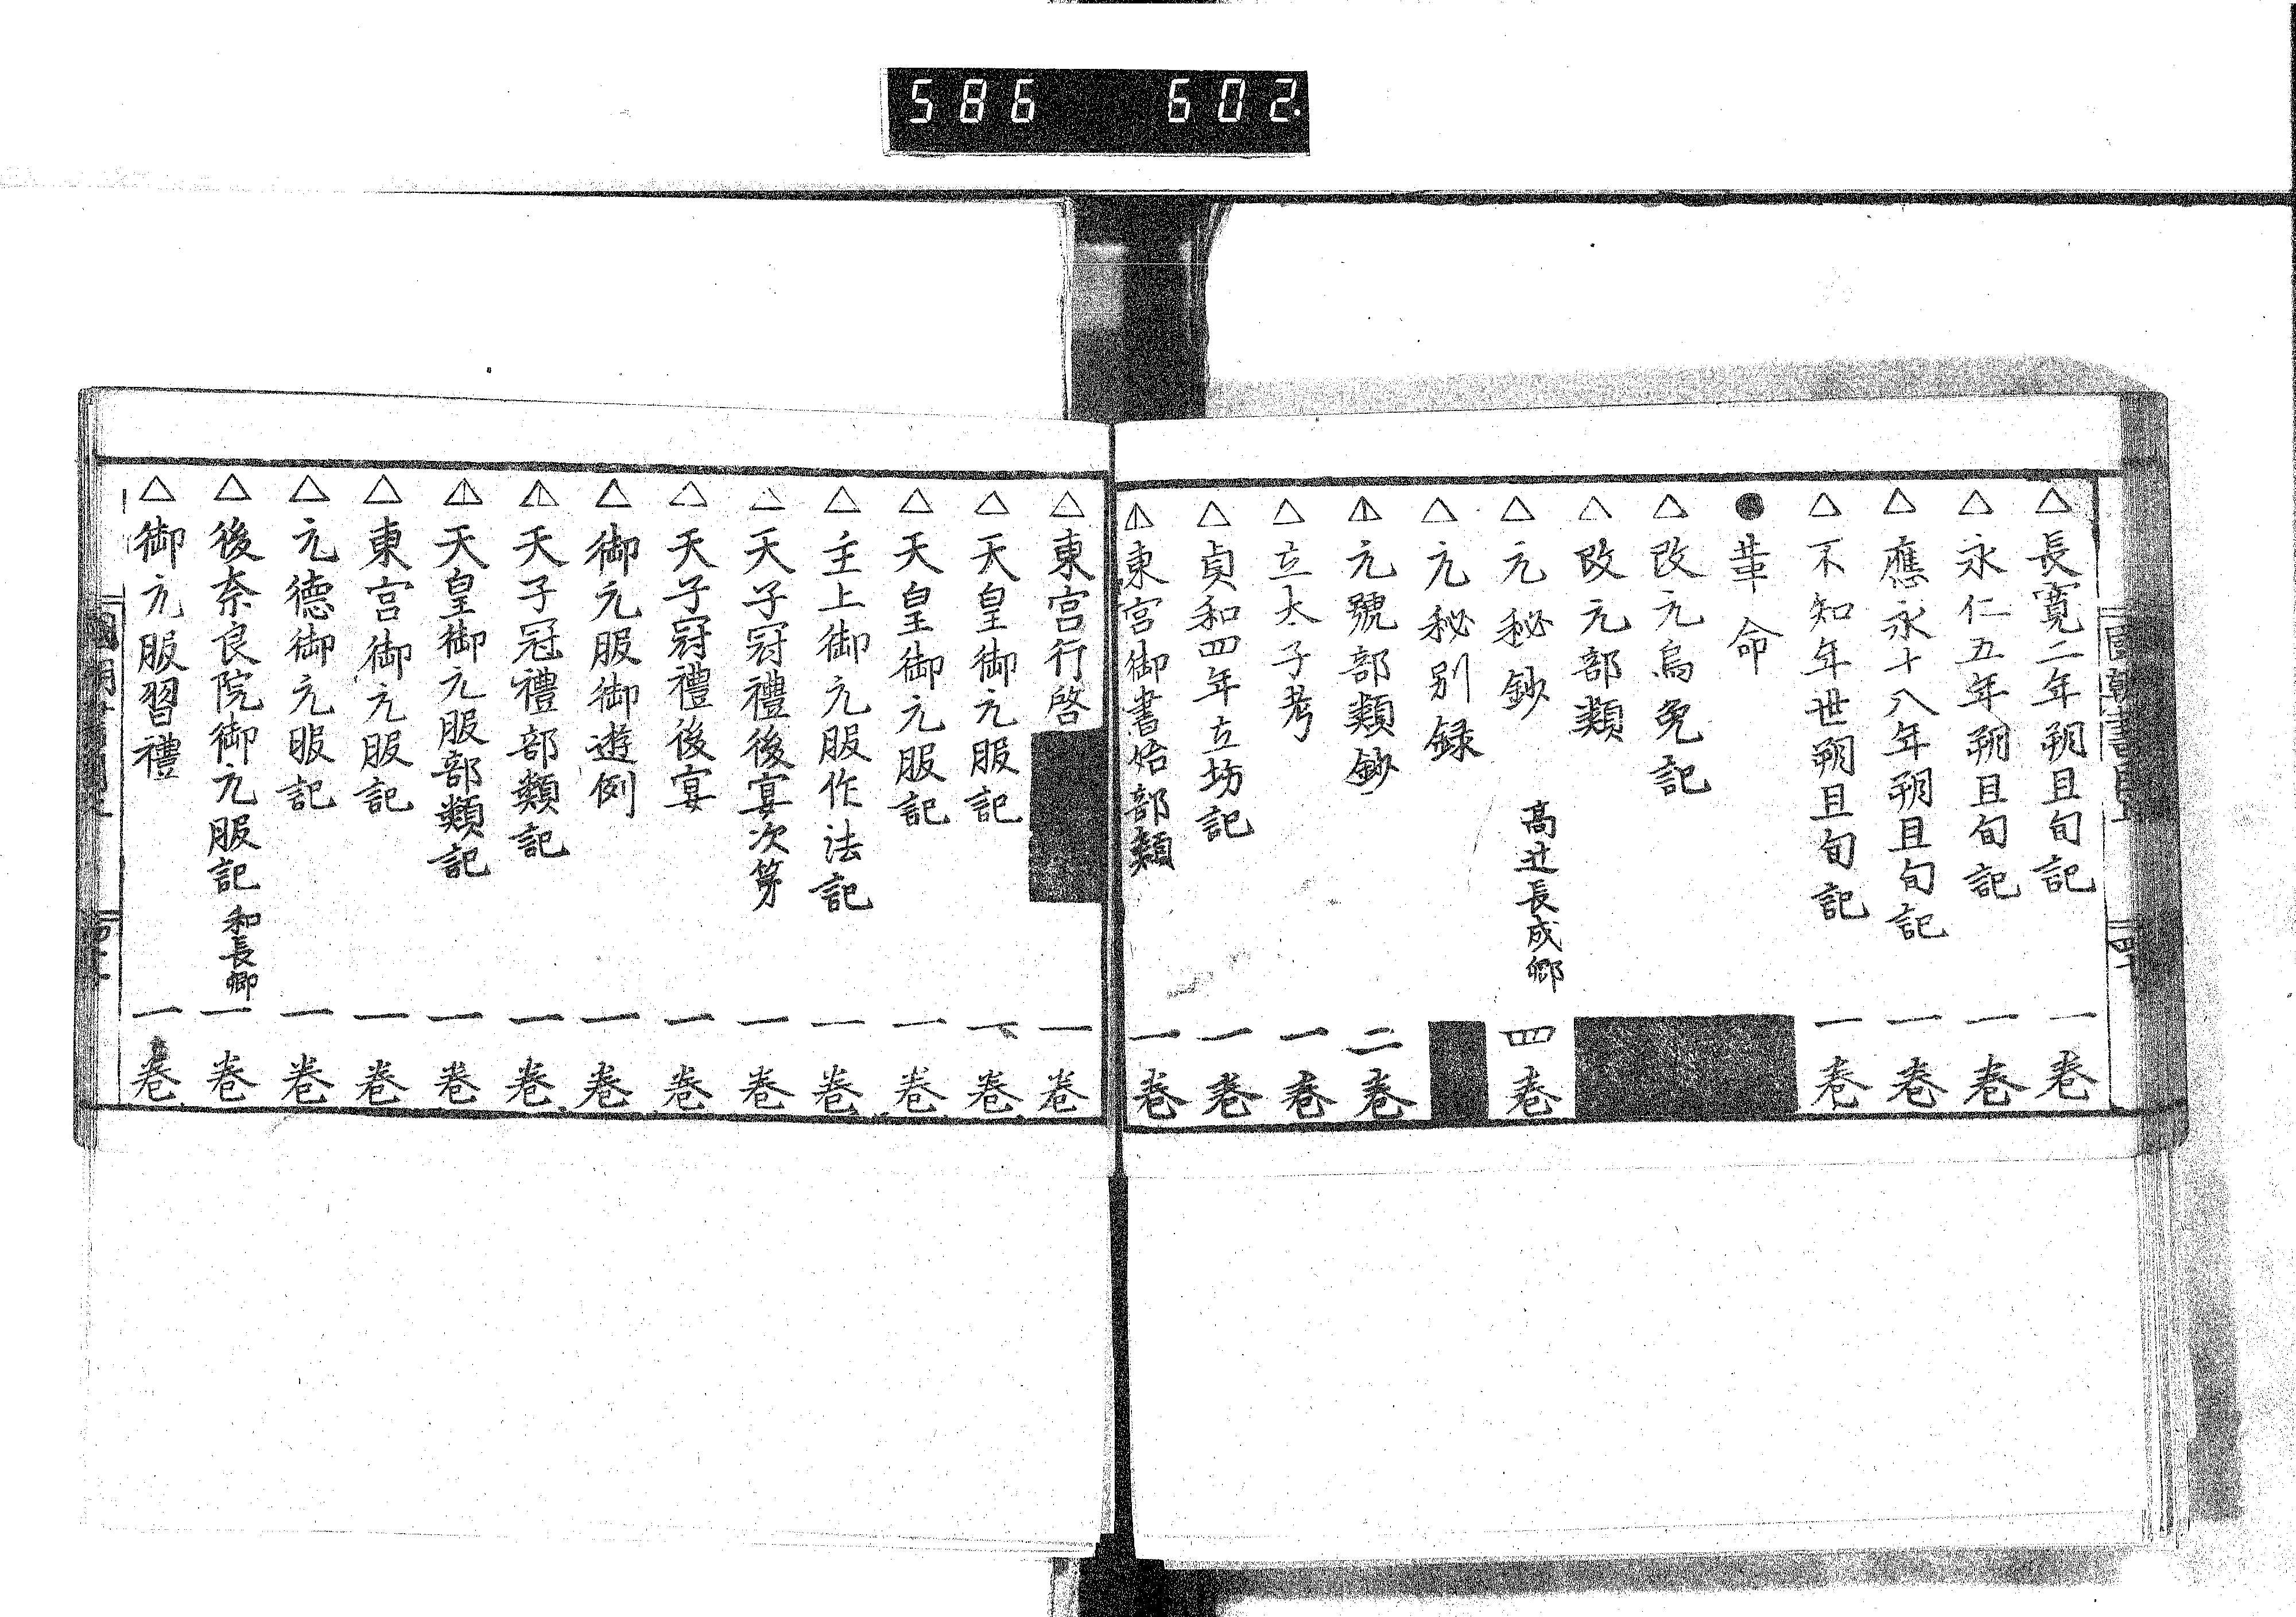 586 602.
△長寛二年朔旦旬記 一卷
△永仁五年朔旦旬記 一卷
△應永十八年朔旦旬記 一卷
△不知年世朔旦旬記 一卷
●革命
△改元烏兔記
△改元部類
△元秘鈔 高辻長成卿 四卷
△元秘別録
△元號部類鈔 二卷
△立太子考 一卷
△貞和四年立坊記 一卷
△東宮御書始部類 一卷
△東宮行啓 一卷
△天皇御元服記 一卷
△天皇御元服記 一卷
△主上御元服作法記 一卷
△天子冠禮後宴次第 一卷
△天子冠禮後宴 一卷
△御元服御遊例 一卷
△天子冠禮部類記 一卷
△天皇御元服部類記 一卷
△東宮御元服記 一卷
△元德御元服記 一卷
△後奈良院御元服記 和長卿 一卷
△御元服習禮 一卷